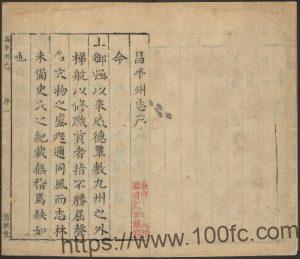 昌平州志序
今
上御極以来威德覃敷九州之外
梯航以修職貢者指不勝屈聲
名文物之盛遐邇同風而志林
未備史氏之紀載無稽焉缺如
也
昌平州志 序 一
https://www.100fc.com